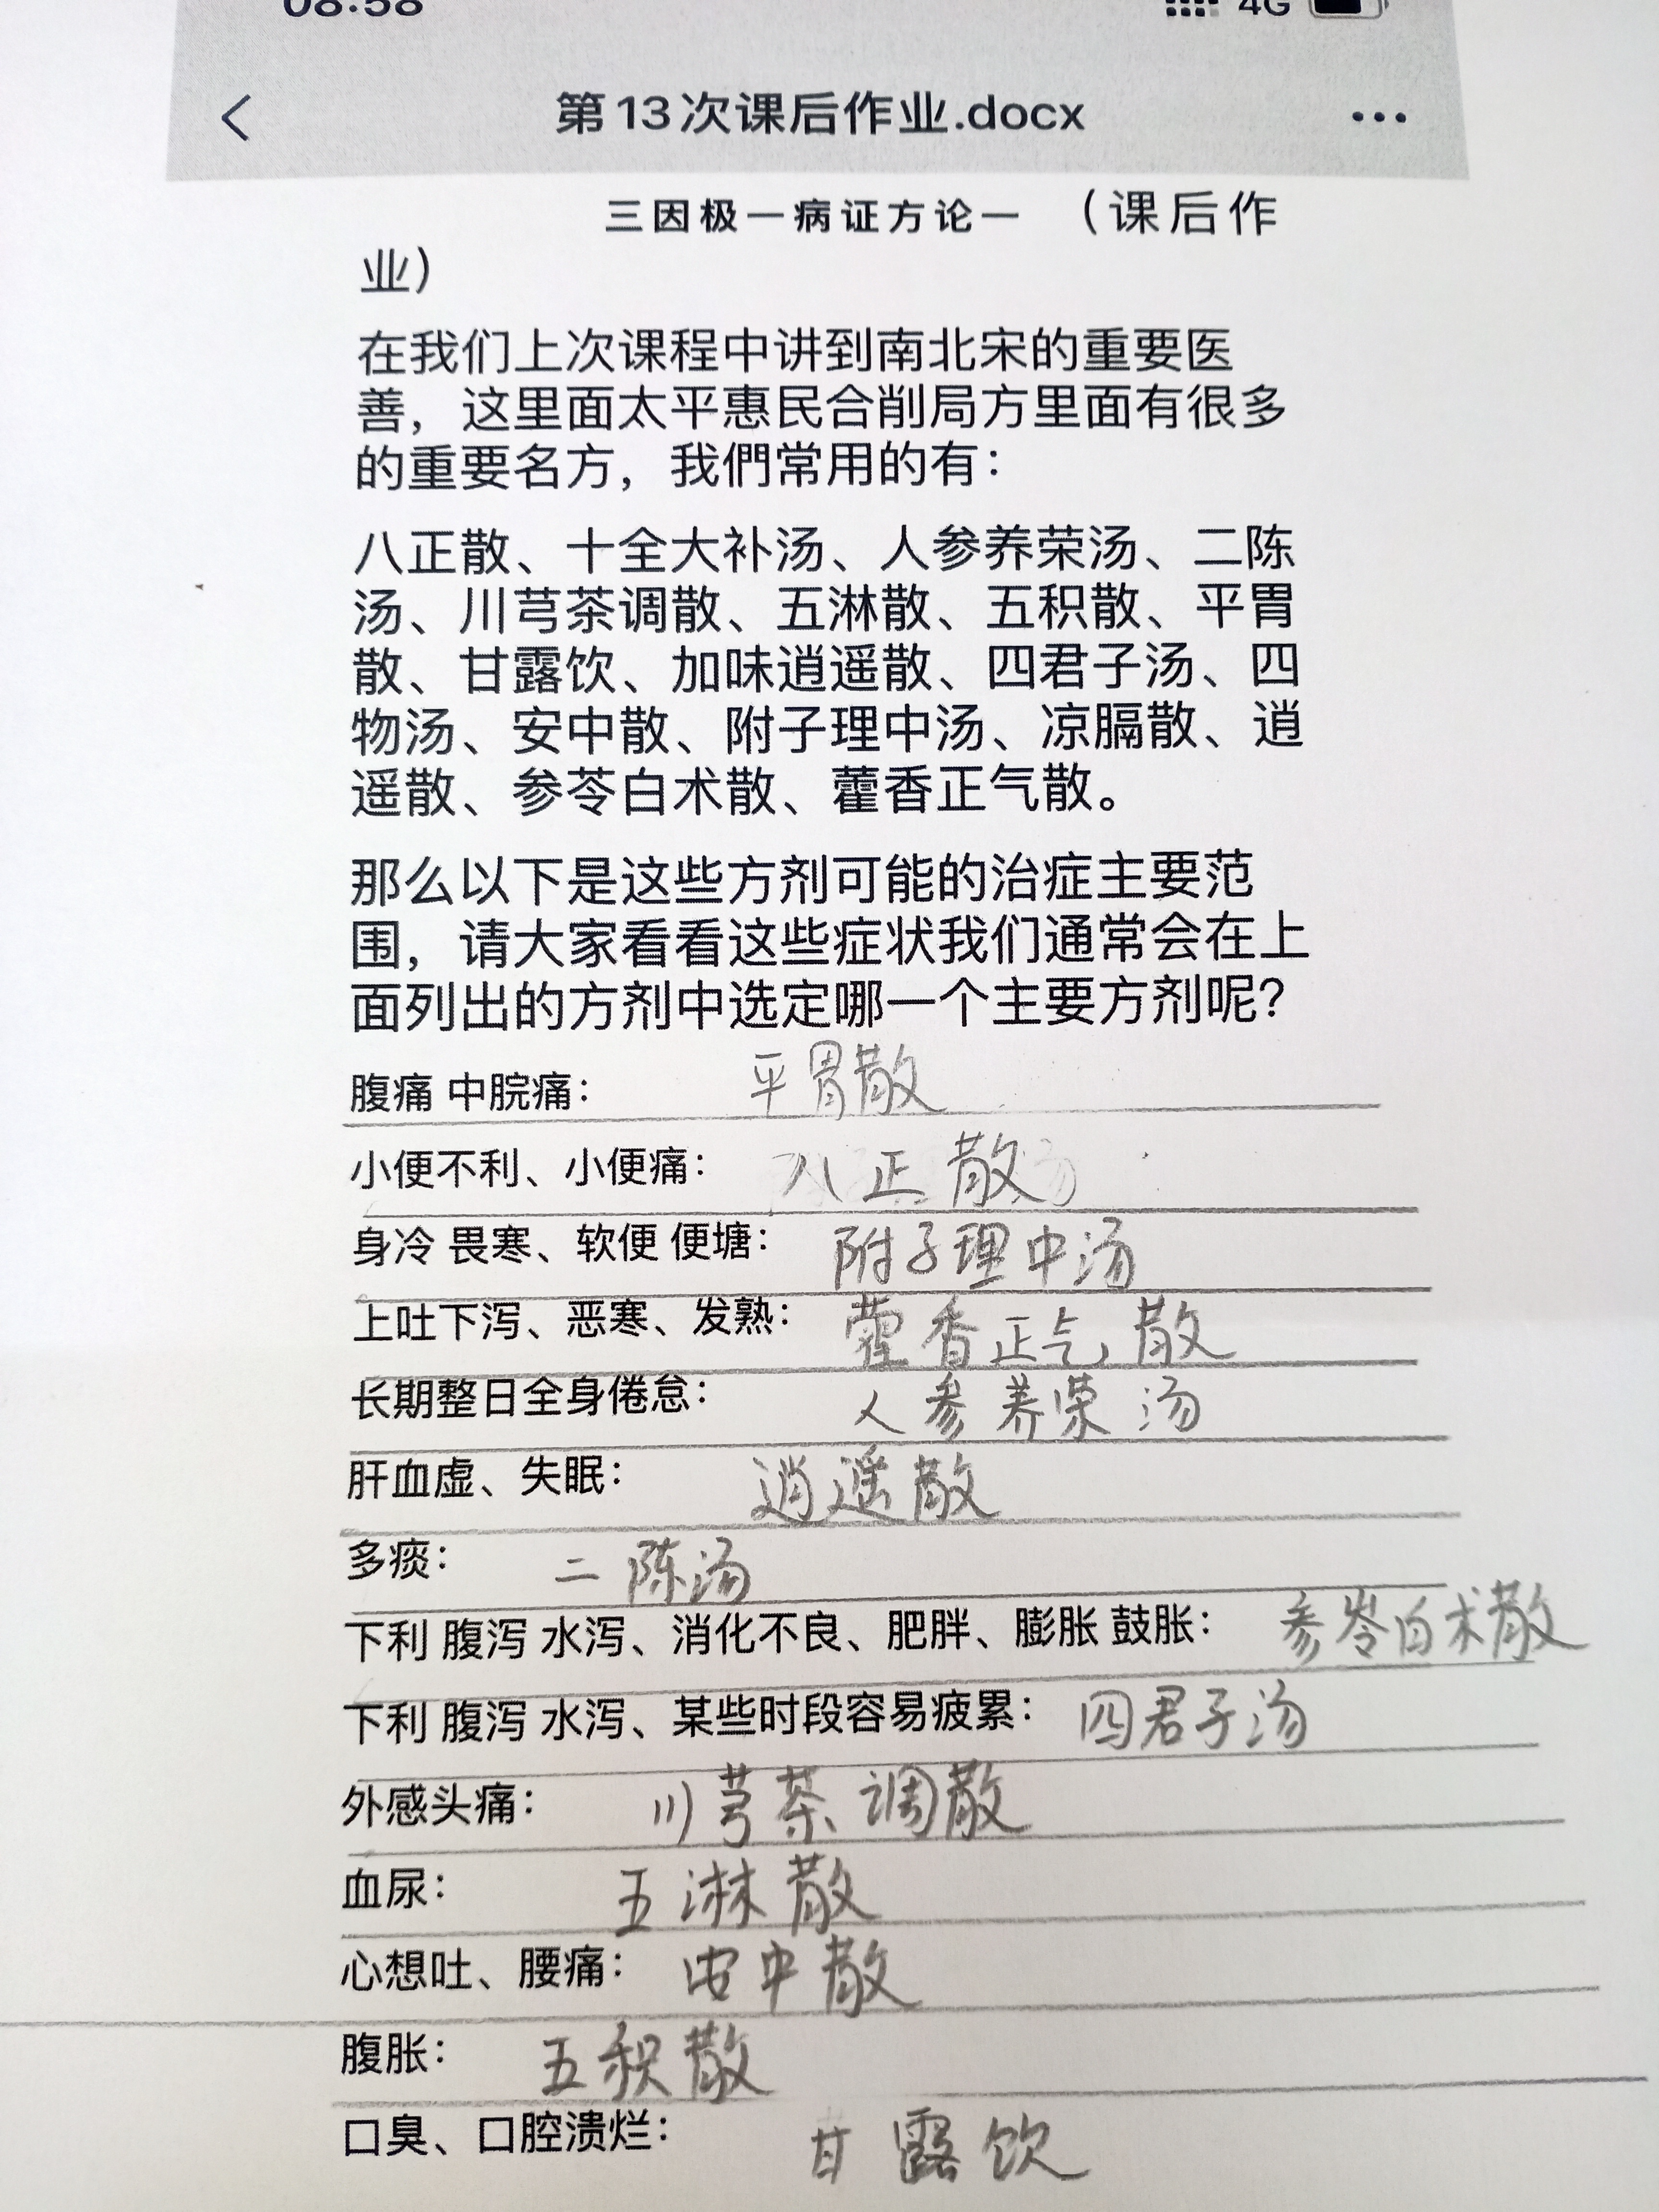 08:58 4G
第13次课后作业.docx
三因极一病证方论一 （课后作
业）
在我们上次课程中讲到南北宋的重要医
善，这里面太平惠民合削局方里面有很多
的重要名方，我們常用的有：
八正散、十全大补汤、人参养荣汤、二陈
汤、川芎茶调散、五淋散、五积散、平胃
散、甘露饮、加味逍遥散、四君子汤、四
物汤、安中散、附子理中汤、凉膈散、逍
遥散、参苓白术散、藿香正气散。
那么以下是这些方剂可能的治症主要范
围，请大家看看这些症状我们通常会在上
面列出的方剂中选定哪一个主要方剂呢？
腹痛 中脘痛： 平胃散
小便不利、小便痛： 八正散
身冷 畏寒、软便 便塘： 附子理中汤
上吐下泻、恶寒、发熟： 藿香正气散
长期整日全身倦怠： 人参养荣汤
肝血虚、失眠： 逍遥散
多痰： 二陈汤
下利 腹泻 水泻、消化不良、肥胖、膨胀 鼓胀： 参岺白术散
下利 腹泻 水泻、某些时段容易疲累： 四君子汤
外感头痛： 川芎茶调散
血尿： 五淋散
心想吐、腰痛： 安中散
腹胀： 五积散
口臭、口腔溃烂： 甘露饮